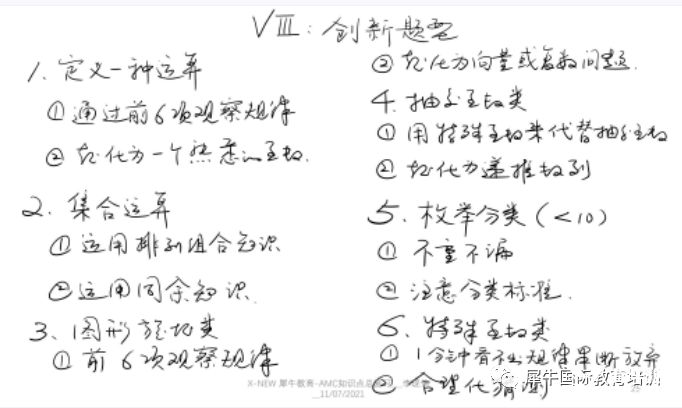 VIII: 创新题型
1. 定义一种运算
① 通过前6项观察规律
② 转化为一个熟悉的函数.
2. 集合运算
① 运用排列组合知识
② 运用同余知识.
3. 图形旋转类
① 前6项观察规律
② 转化为向量或复数问题.
4. 抽象函数类
① 用特殊函数来代替抽象函数
② 转化为递推数列
5. 枚举分类(<10)
① 不重不漏
② 注意分类标准.
6. 特殊函数类
① 1分钟看不出规律果断放弃
② 合理化猜测
X-NEW 犀牛教育-AMC知识点总
11/07/2021
犀牛国际教育培训